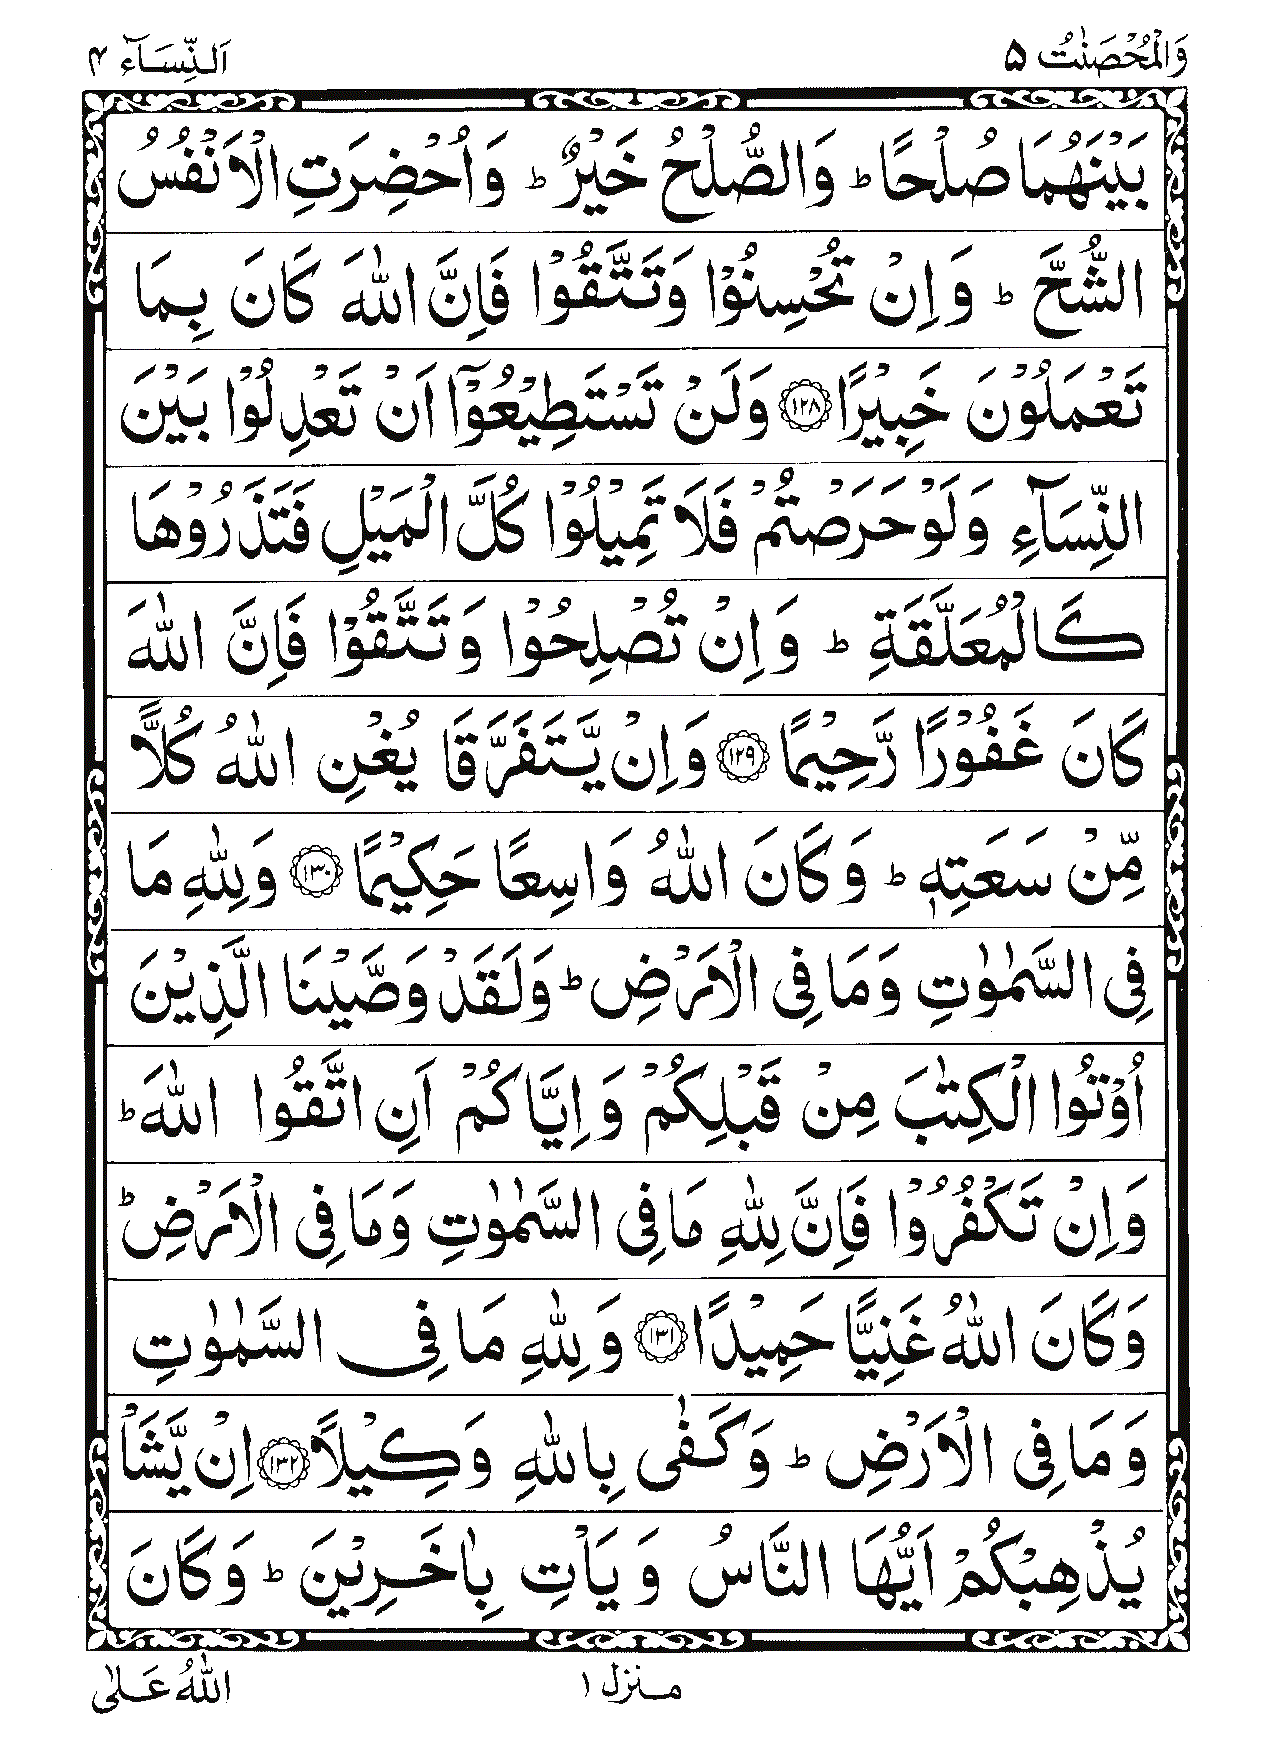 وَالْمُحْصَنٰتُ ۵
اَلنِّسَآءِ ۴
بَيْنَهُمَا صُلْحًا ؕ وَالصُّلْحُ خَيْرٌ ؕ وَاُحْضِرَتِ الْاَنْفُسُ
الشُّحَّ ؕ وَاِنْ تُحْسِنُوْا وَتَتَّقُوْا فَاِنَّ اللّٰهَ كَانَ بِمَا
تَعْمَلُوْنَ خَبِيْرًا ۝۱۲۸ وَلَنْ تَسْتَطِيْعُوْۤا اَنْ تَعْدِلُوْا بَيْنَ
النِّسَآءِ وَلَوْ حَرَصْتُمْ فَلَا تَمِيْلُوْا كُلَّ الْمَيْلِ فَتَذَرُوْهَا
كَالْمُعَلَّقَةِ ؕ وَاِنْ تُصْلِحُوْا وَتَتَّقُوْا فَاِنَّ اللّٰهَ
كَانَ غَفُوْرًا رَّحِيْمًا ۝۱۲۹ وَاِنْ يَّتَفَرَّقَا يُغْنِ اللّٰهُ كُلًّا
مِّنْ سَعَتِهٖ ؕ وَكَانَ اللّٰهُ وَاسِعًا حَكِيْمًا ۝۱۳۰ وَلِلّٰهِ مَا
فِى السَّمٰوٰتِ وَمَا فِى الْاَرْضِ ؕ وَلَقَدْ وَصَّيْنَا الَّذِيْنَ
اُوْتُوا الْكِتٰبَ مِنْ قَبْلِكُمْ وَاِيَّاكُمْ اَنِ اتَّقُوا اللّٰهَ ؕ
وَاِنْ تَكْفُرُوْا فَاِنَّ لِلّٰهِ مَا فِى السَّمٰوٰتِ وَمَا فِى الْاَرْضِ ؕ
وَكَانَ اللّٰهُ غَنِيًّا حَمِيْدًا ۝۱۳۱ وَلِلّٰهِ مَا فِى السَّمٰوٰتِ
وَمَا فِى الْاَرْضِ ؕ وَكَفٰى بِاللّٰهِ وَكِيْلًا ۝۱۳۲ اِنْ يَّشَاْ
يُذْهِبْكُمْ اَيُّهَا النَّاسُ وَيَاْتِ بِاٰخَرِيْنَ ؕ وَكَانَ
منزل ۱
اللّٰهُ عَلٰى